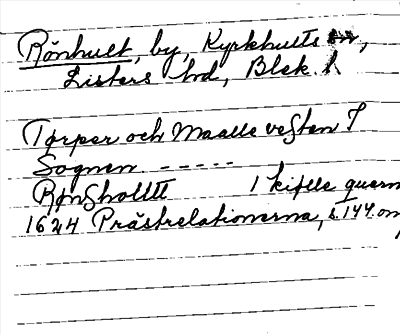 Rönhult, by, Kyrkhults sn,
Listers hd, Blek. l
Tørper och Maalle vesten I
Sognen - - - - -
Rønsholltt 1 kiflle quern
1624 Prästrelationerna, s. 144. om